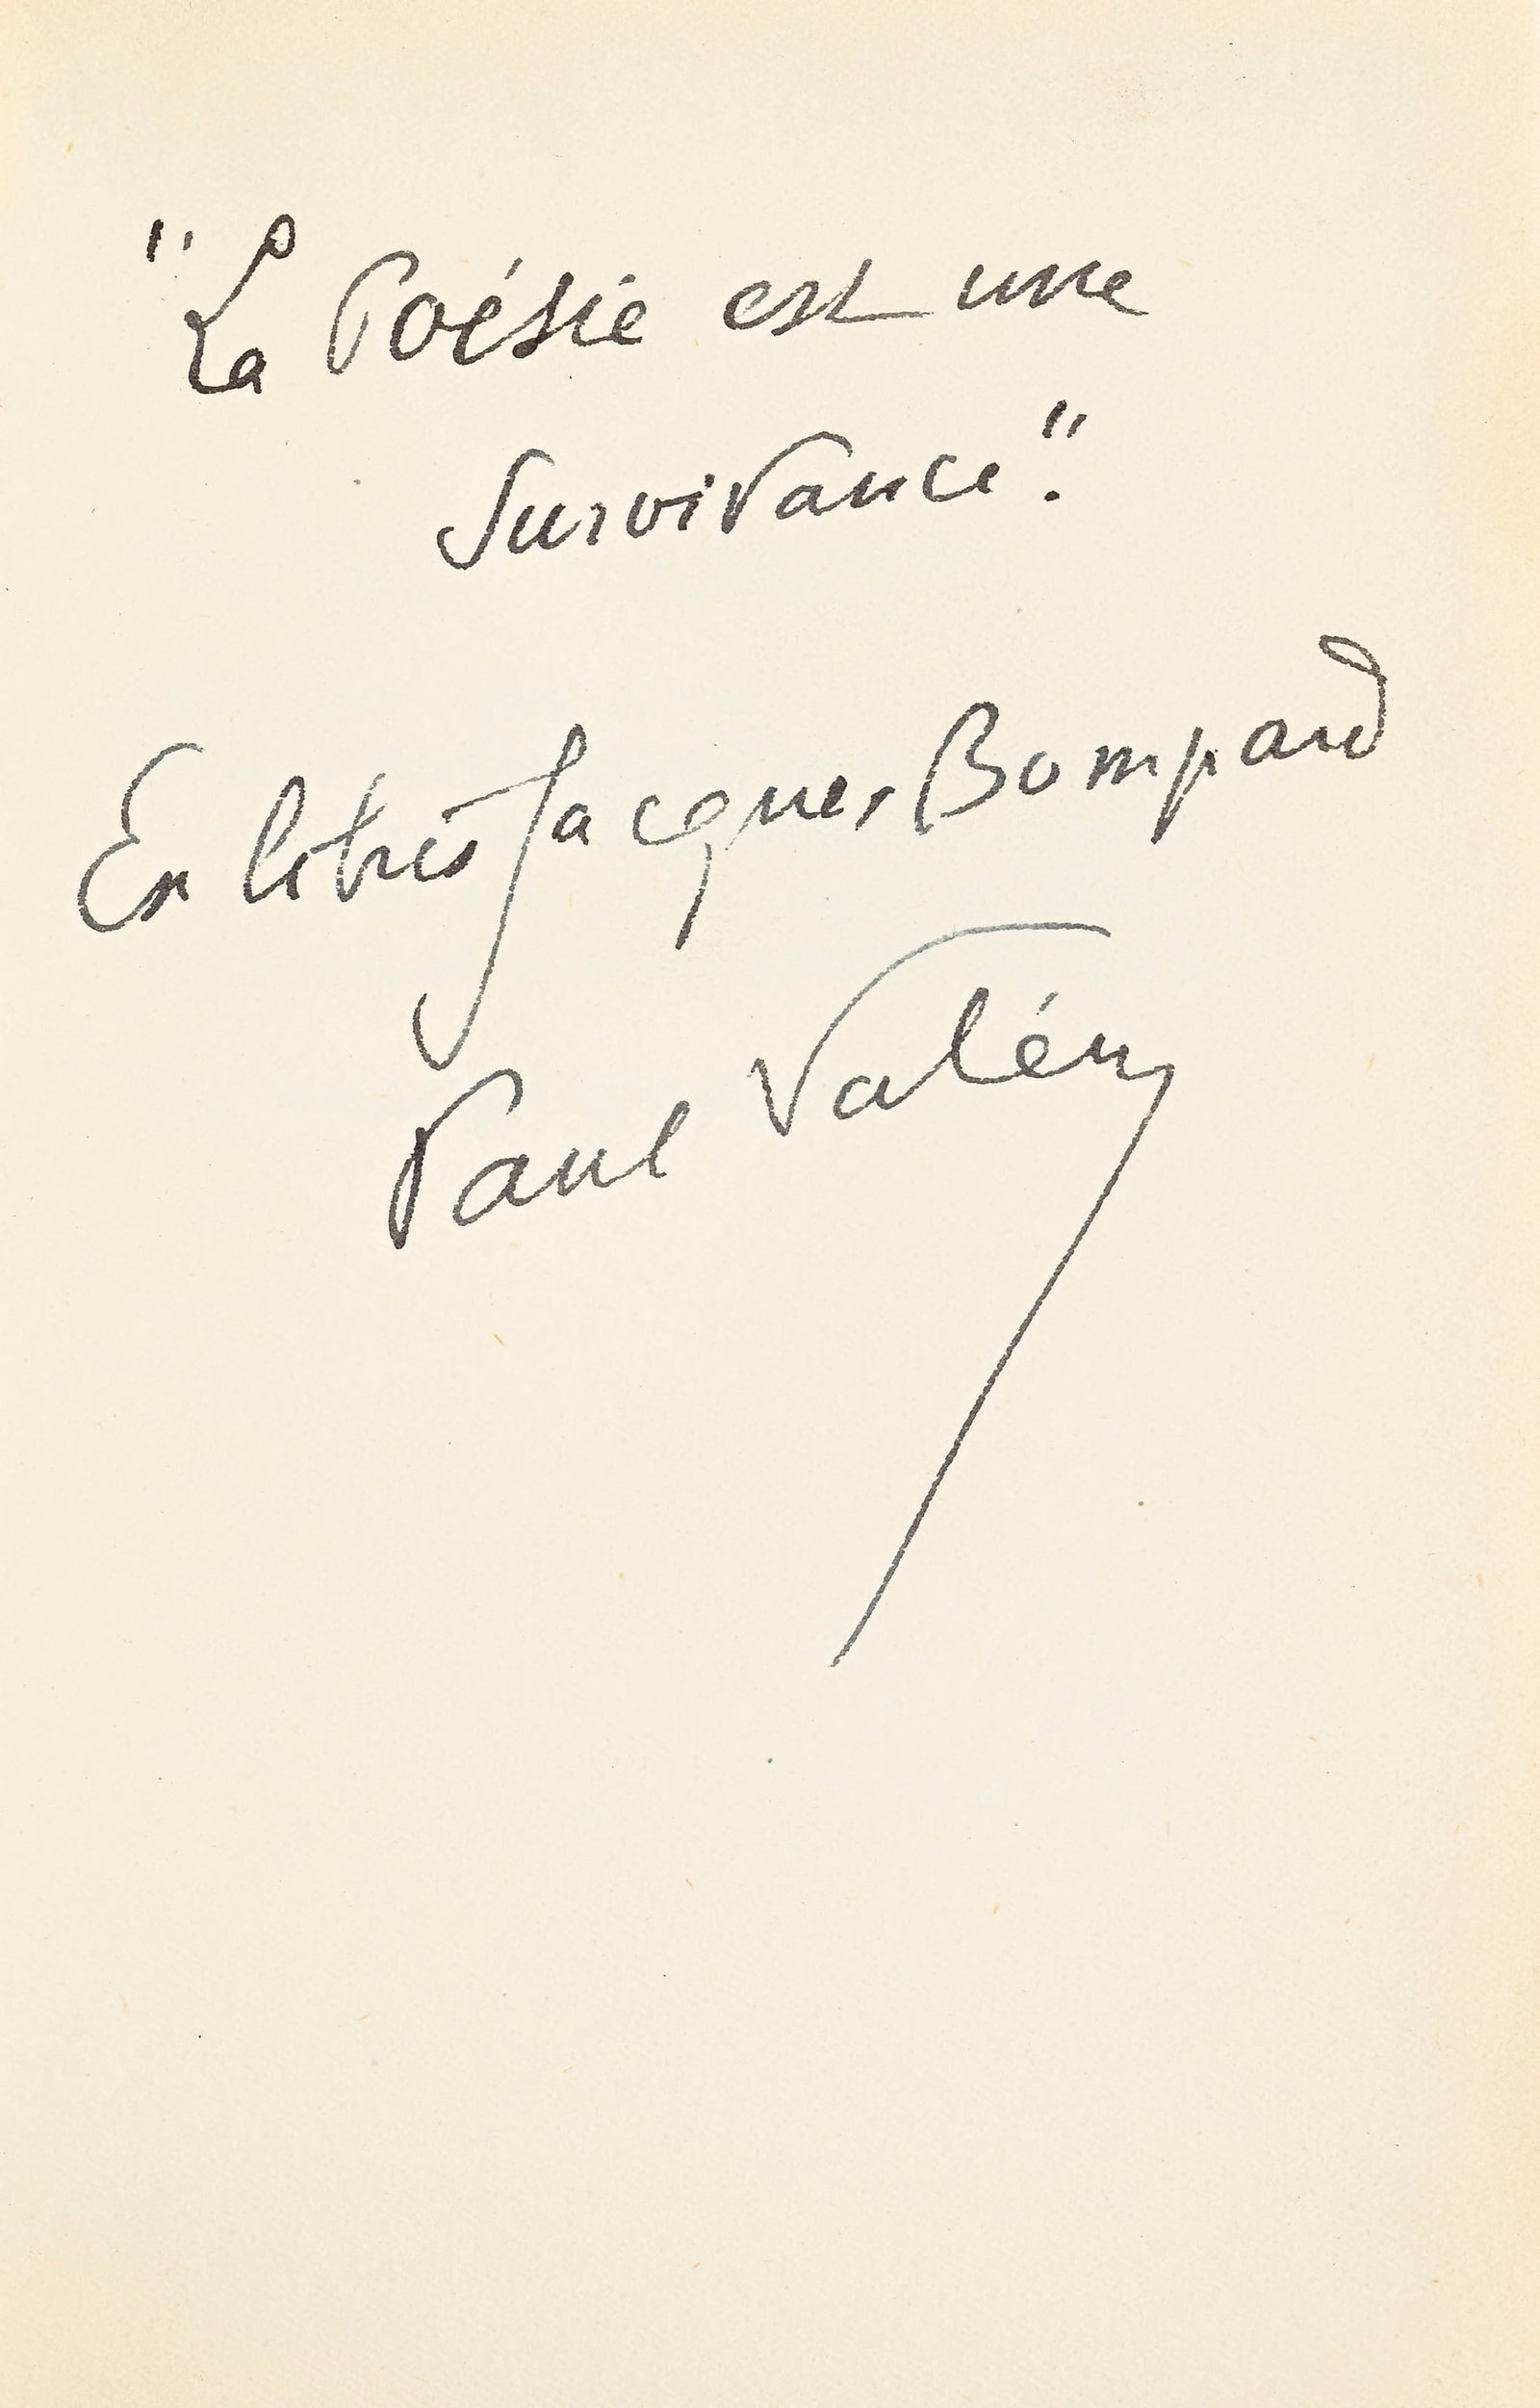 "La Poésie est une
Survivance."
Ex libris Jacques Bompard
Paul Valéry